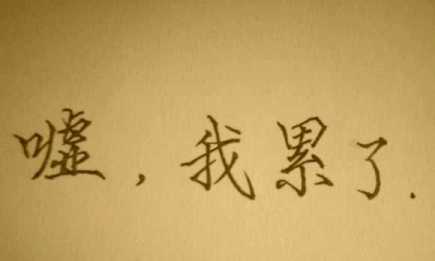 嘘，我累了.